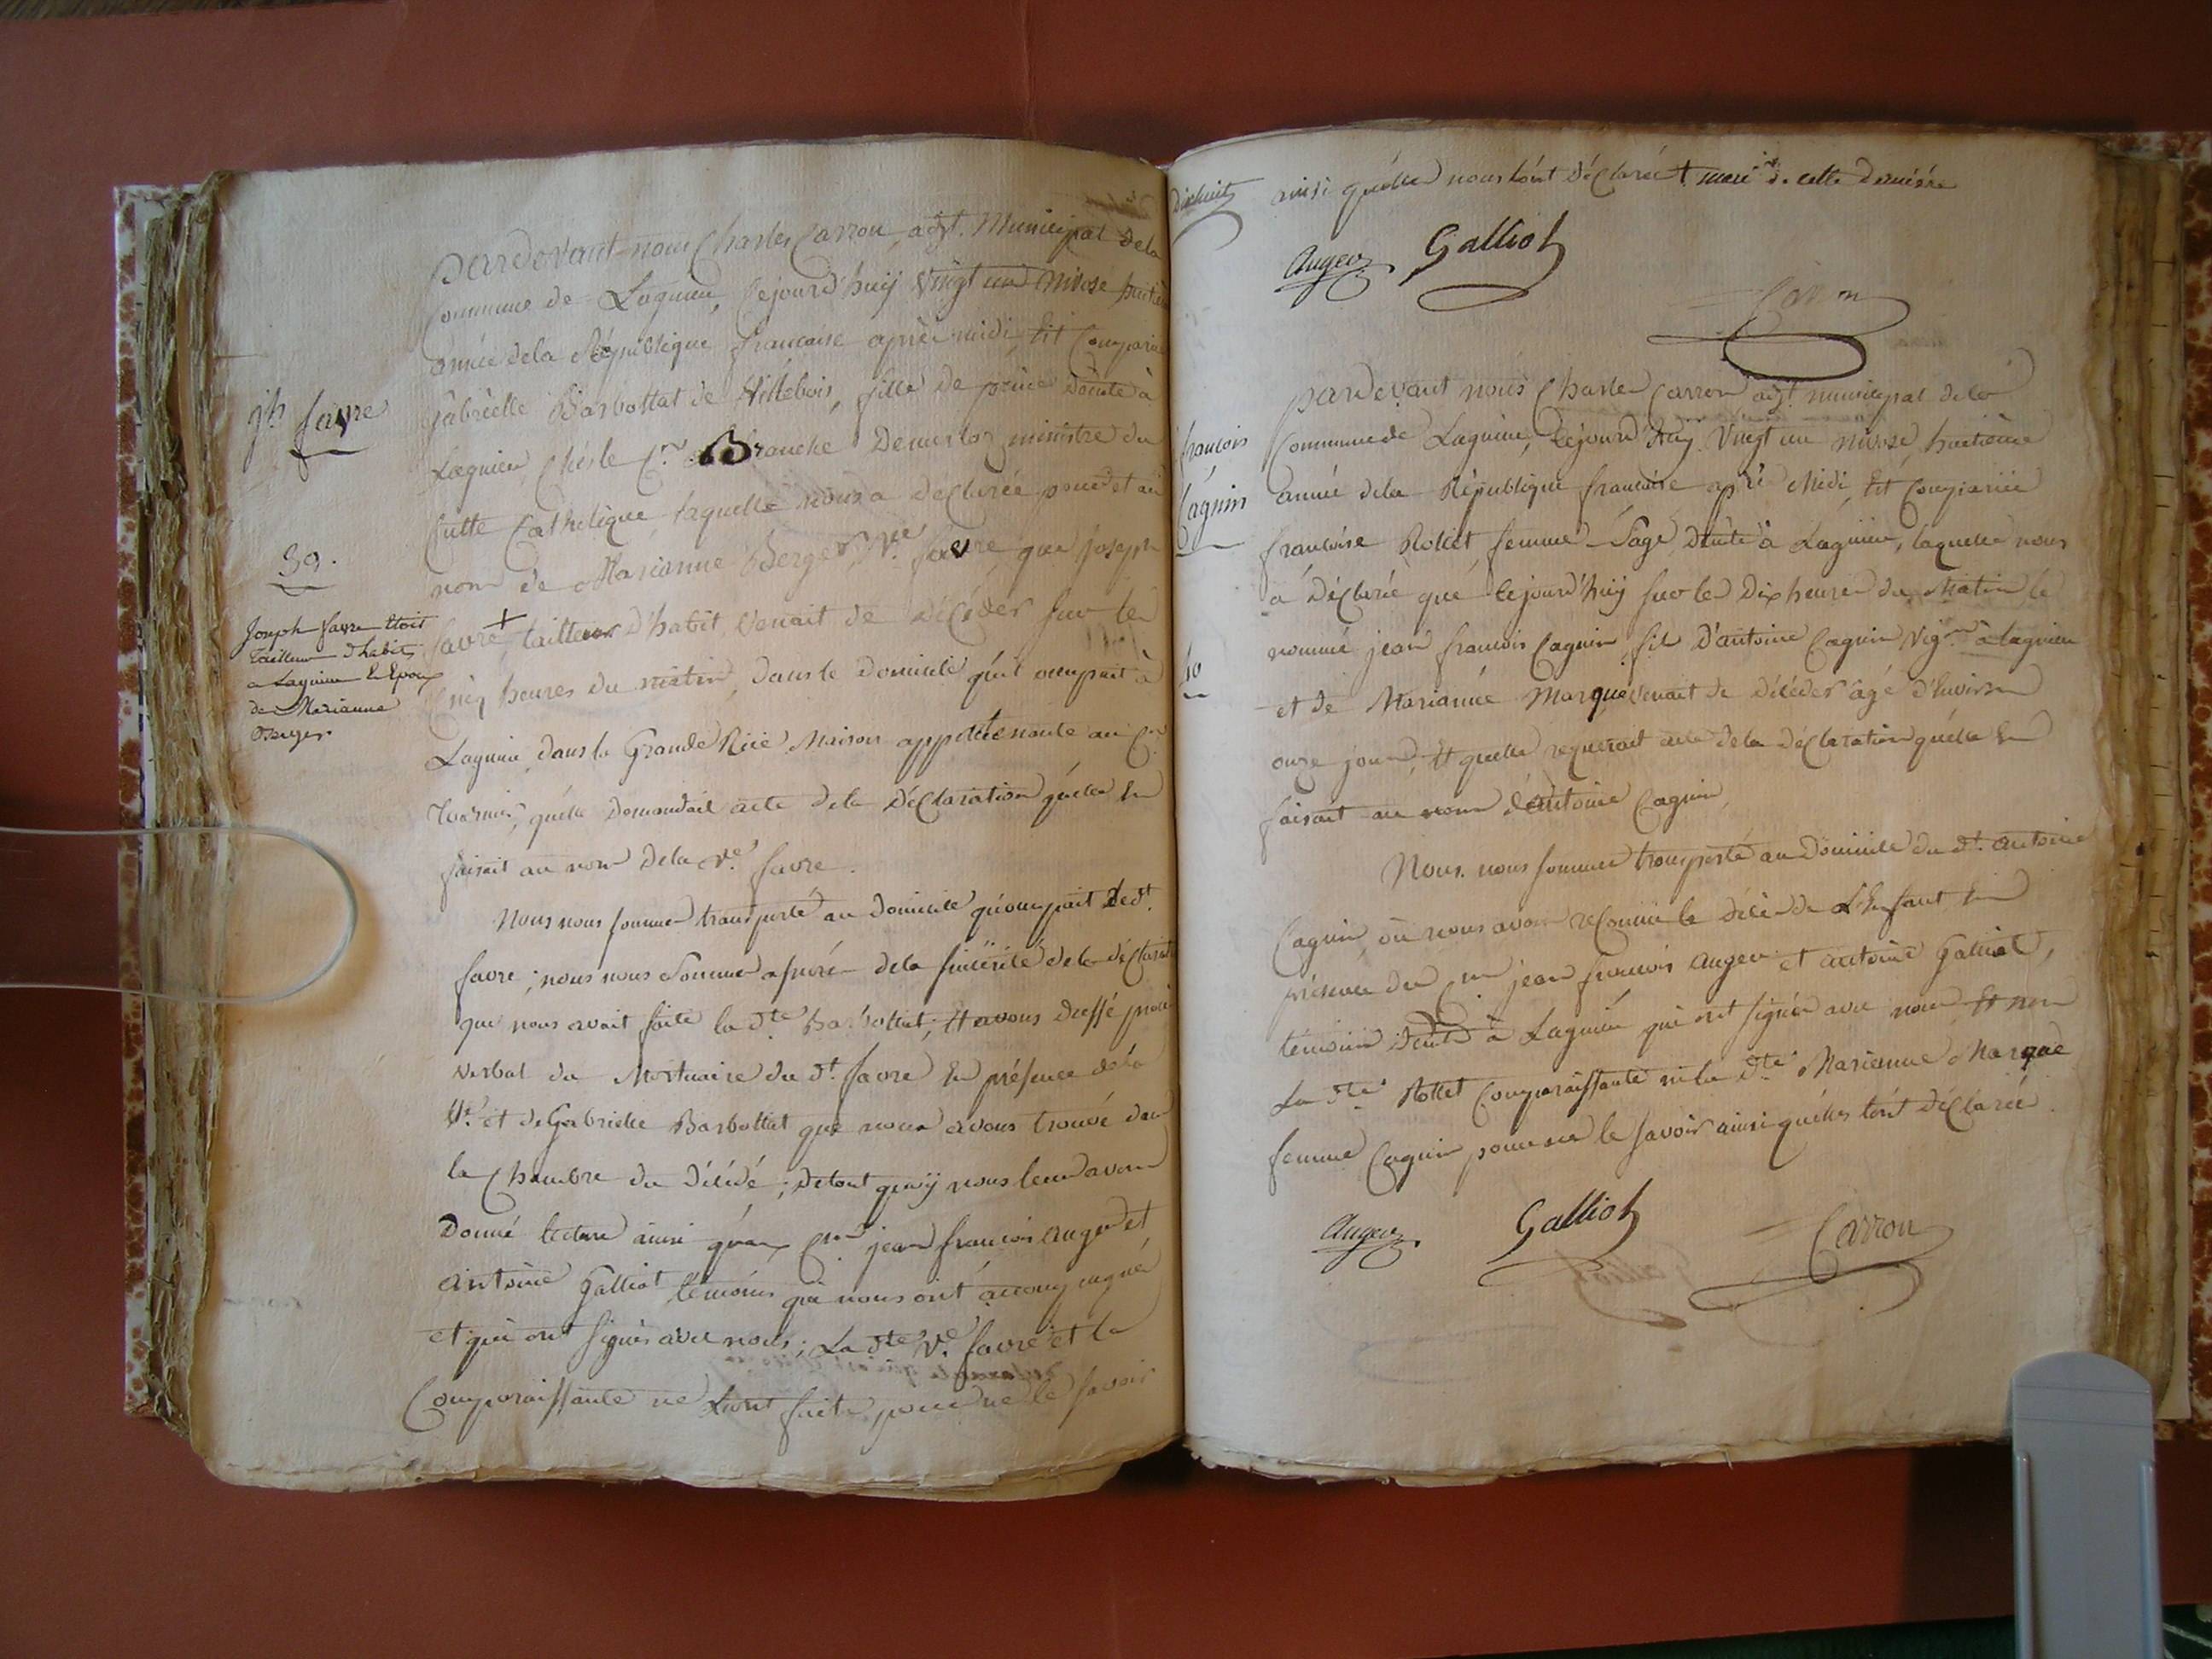 pardevant nous Charles Carron, agt. Municipal de la
Commune de Lagnieu, Cejourd'huy vingt un nivose huitième
année de la République francaise après midi, Est Comparüe
gabrielle Barbottat de Villebois, fille de peine Dte à
Lagnieu, Chés le Cn. Branche Demerloz ministre du
Culte Catholique, laquelle nous a déclarée pour et au
nom de Marianne Berger Ve. favre, que Joseph
favre + tailleur d'habit, venait de décéder sur les
Cinq heures du matin, dans le Domicile qu'il occupait à
Lagnieu, dans la Grande Rüe, Maison appartenante au Cn
qu'elle Demandait acte de la Déclaration qu'elle En
faisait au nom de la Ve. favre.
Nous nous sommes transporté au domicile qu'occupait Led.
favre; nous nous sommes assurés de la sincérité de la déclaration
que nous avait faite la dte Barbottat; Et avons dressé procè
verbal du Mortuaire du dt. favre En présence de la
Ve. et de Gabrielle Barbottat que nous avons trouvé dans
la Chambre du décédé; de tout quoy nous leur avons
Donné lecture ainsi qu'aux Cns jean francois Auger et
Antoine Galliot témoins qui nous ont accompagné
et qui ont signés avec nous; La dte Ve. favre et la
Comparaissante ne L'ont faite, pour ne le savoir
jh favre
39.
Joseph favre Etoit
Tailleur d'habits
a Lagnieu Et Epoux
de Marianne
Berger
Dixhuit
ainsi qu'elles nous l'ont déclaré + mari de cette dernière
Auger Galliot
Carron
pardevant nous Charles Carron agt. municipal de la
Commune de Lagnieu, Cejourd'huy Vingt un nivose, huitième
année de la République francaise après Midi, Est Comparüe
francoise Rollet femme Sage, Dte à Lagnieu, laquelle nous
a déclaré que Cejourd'huy sur les Dix heures du Matin le
nommé jean francois Cagnin fils D'antoine Cagnin Vign. à Lagnieu
et de Marianne Marque venait de décéder âgé d'Environ
onze jours, Et qu'elle requerait acte de la déclaration qu'elle En
faisait au nom d'Antoine Cagnin
Nous nous sommes transporté au Domicile du dt. antoine
Cagnin, où nous avons reconnu le décès de L'Enfant En
présence des Cns jean francois Auger et antoine Galliot,
témoins à Lagnieu qui ont signés avec nous Et non
La dte Rollet Comparaissante ni la dte Marianne Marque
femme Cagnin pour ne le savoir ainsi qu'elles l'ont déclarée.
Auger Galliot Carron
francois
Cagnin
40